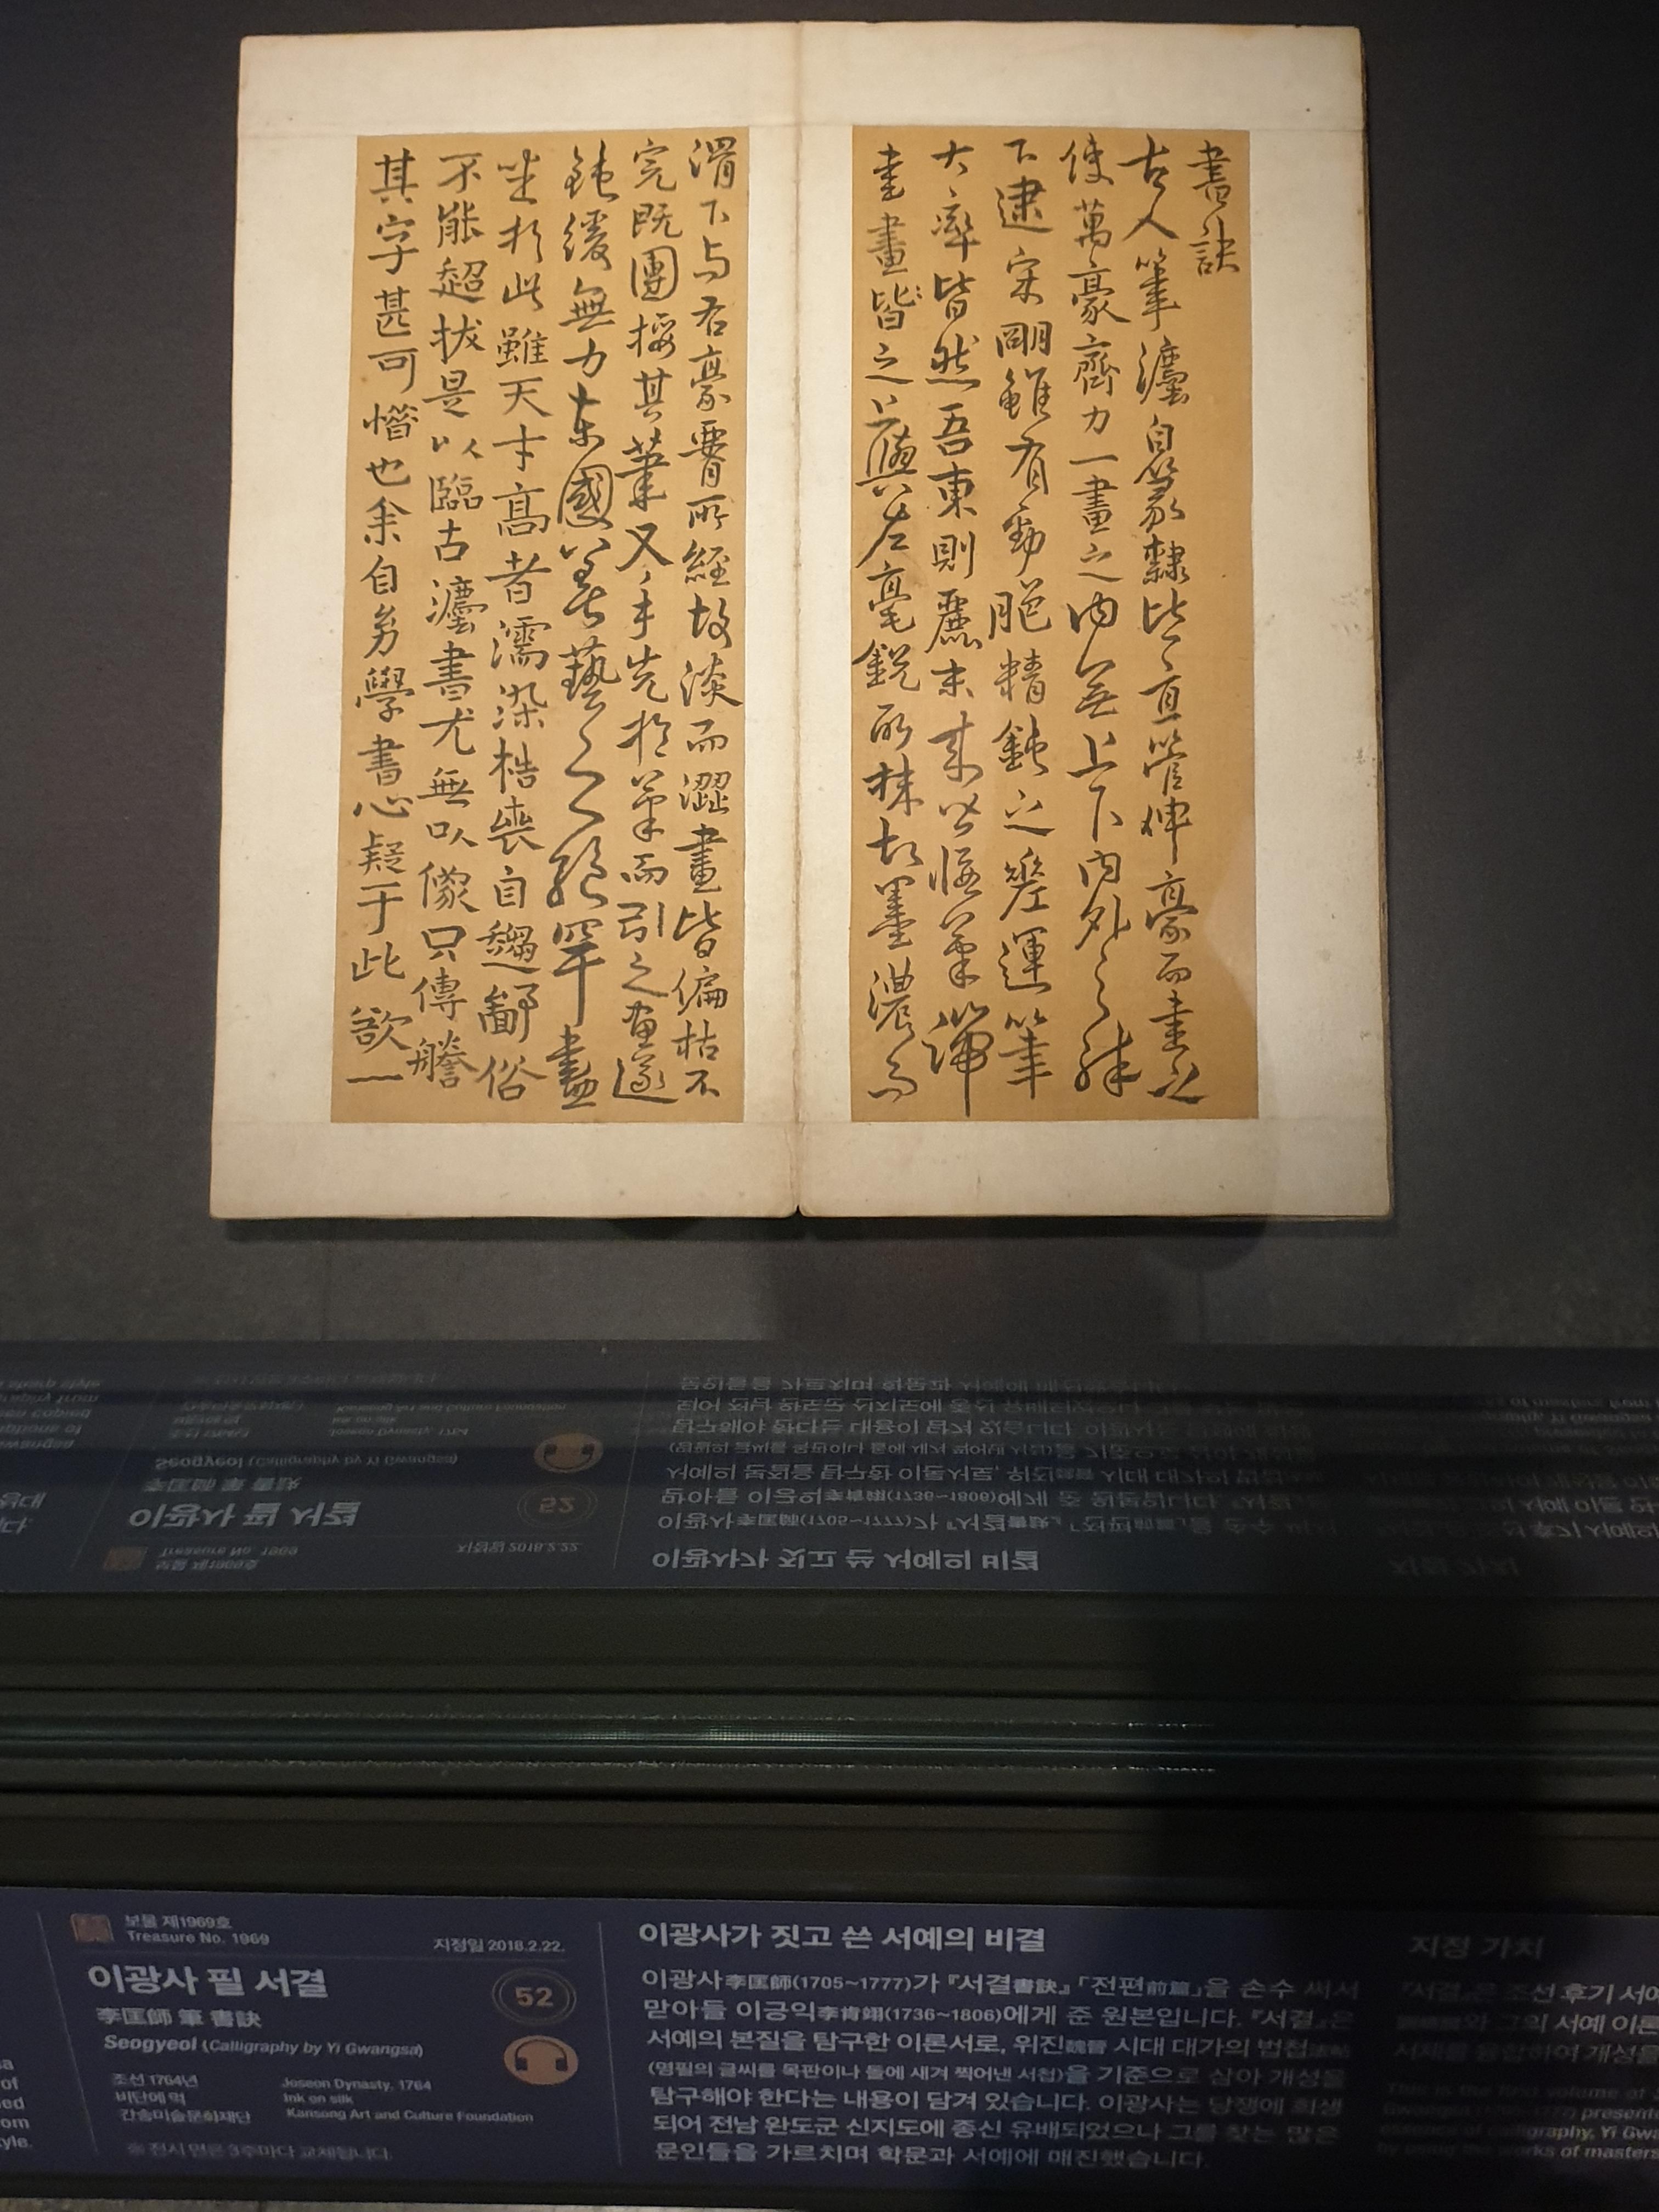 書訣
古人筆灋自篆隸皆直管伸豪而書之
使萬豪齊力一畫之內無上下內外之殊
下逮宋明雖有勁脆精鈍之差運筆
大率皆然吾東則麗末來皆偃筆端
書畫皆之上與左毫銳所抹故墨濃而
滑下与右豪所經故淡而澀畫皆偏枯不
完旣團其筆又手先於筆而引之畫遂
鈍緩無力東國以善藝絕罕盡
坐於此雖天才高者濡染梏喪自俗
不能超拔是以臨古灋書尤無以只傳謄
其字甚可惜也余自幼學書心疑于此欲一
보물 제1969호
Treasure No. 1969
지정일 2018.2.22.
이광사 필 서결
52
李匡師 筆 書訣
Seogyeol (Calligraphy by Yi Gwangsa)
조선 1764년
Joseon Dynasty, 1764
비단에 먹
Ink on silk
간송미술문화재단
Kansong Art and Culture Foundation
※ 전시 면은 3주마다 교체됩니다.
이광사가 짓고 쓴 서예의 비결
이광사李匡師(1705~1777)가 『서결書訣』「전편前篇」을 손수 써서
맏아들 이긍익李肯翊(1736~1806)에게 준 원본입니다. 『서결』은
서예의 본질을 탐구한 이론서로, 위진魏晉 시대 대가의 법첩法帖
(명필의 글씨를 목판이나 돌에 새겨 찍어낸 서첩)을 기준으로 삼아 개성을
탐구해야 한다는 내용이 담겨 있습니다. 이광사는 당쟁에 희생
되어 전남 완도군 신지도에 종신 유배되었으나 그를 찾는 많은
문인들을 가르치며 학문과 서예에 매진했습니다.
지정 가치
『서결』은 조선 후기 서예
그의 서예 이론
융합하여 개성을
This is the first volume of
presented
essence of calligraphy, Yi Gwa
by using the works of masters